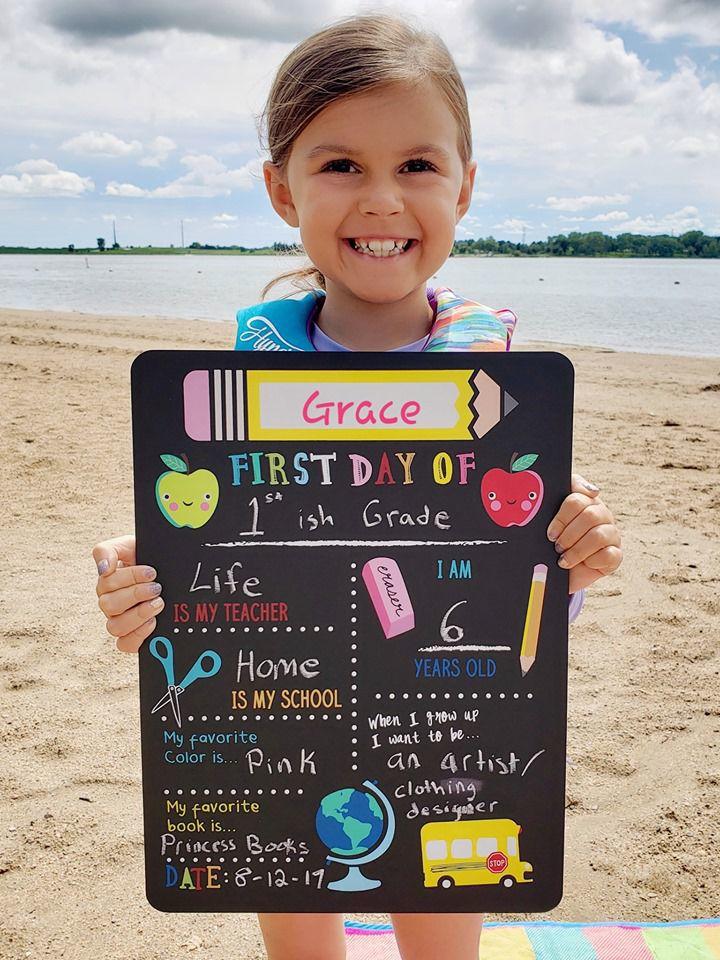 Grace
FIRST DAY OF
1st ish Grade
Life
IS MY TEACHER
eraser
I AM
6
YEARS OLD
Home
IS MY SCHOOL
When I grow up
I want to be...
an artist/
clothing
designer
My favorite
Color is... Pink
My favorite
book is...
Princess Books
STOP
DATE: 8-12-19